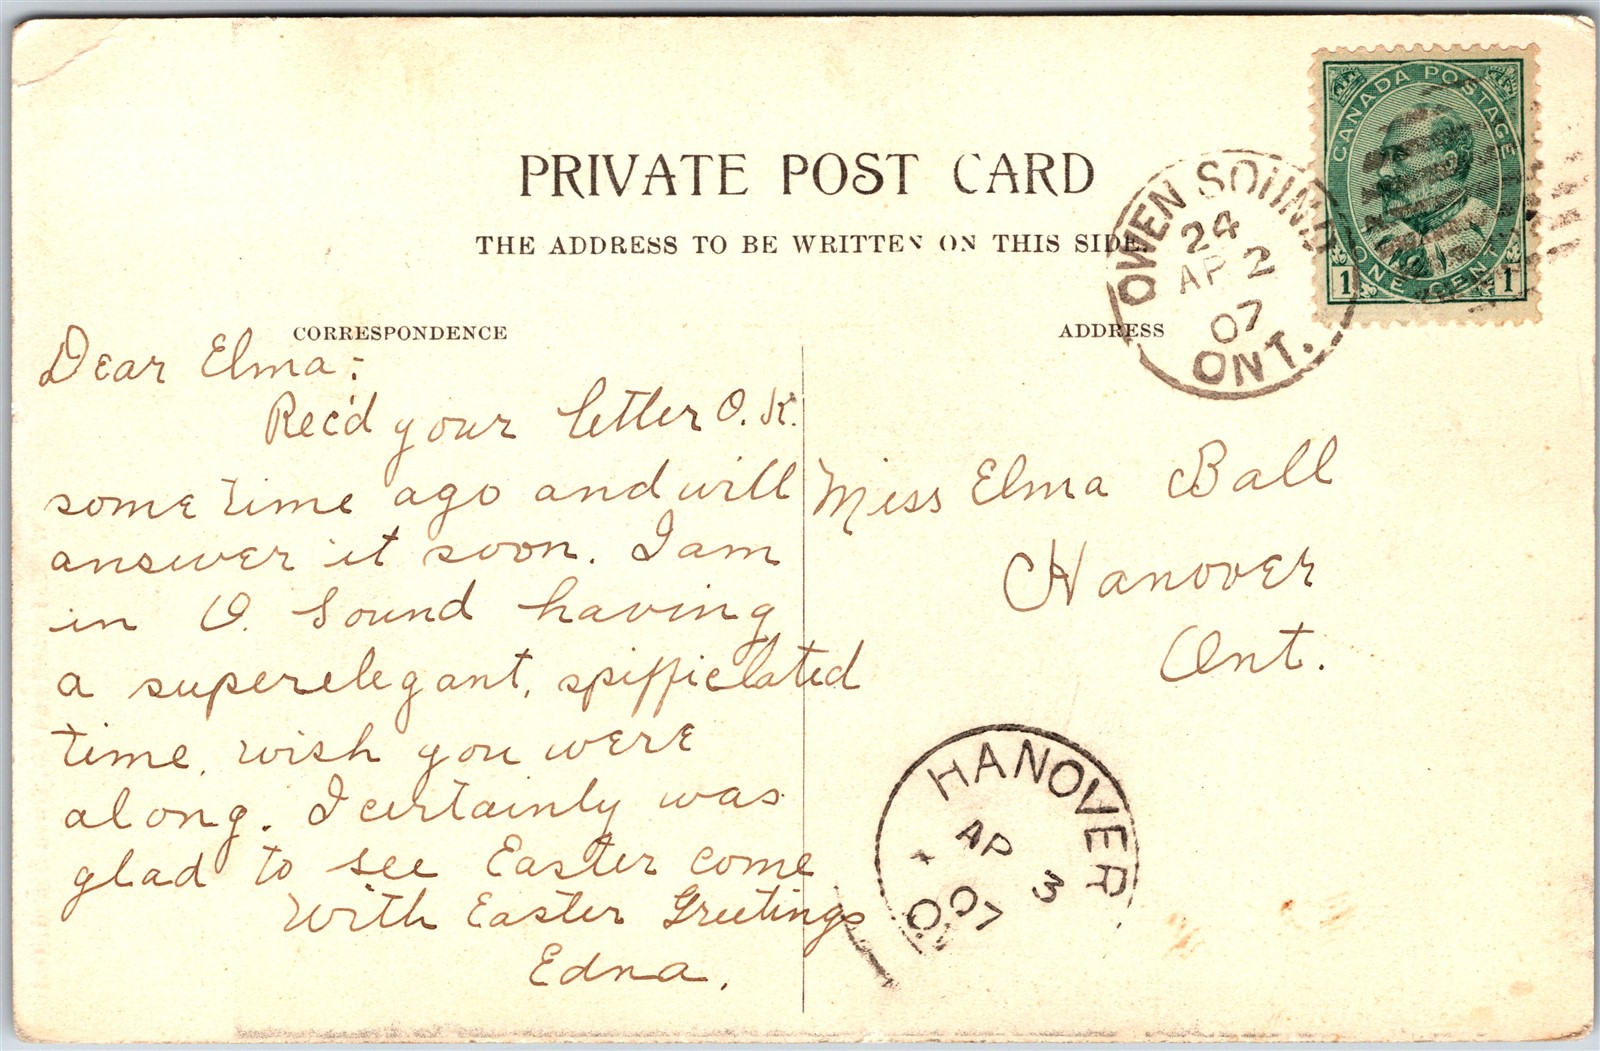 CANADA POSTAGE
1 ONE CENT 1
PRIVATE POST CARD
THE ADDRESS TO BE WRITTEN ON THIS SIDE.
OWEN SOUND
24
AP 2
07
ONT.
CORRESPONDENCE
ADDRESS
Dear Elma:
Rec'd your letter O.K.
some time ago and will
answer it soon. I am
in O. Sound having
a superelegant, spifficlated
time, wish you were
along. I certainly was
glad to see Easter come
With Easter Greetings
Edna.
Miss Elma Ball
Hanover
Ont.
HANOVER
AP 3
07